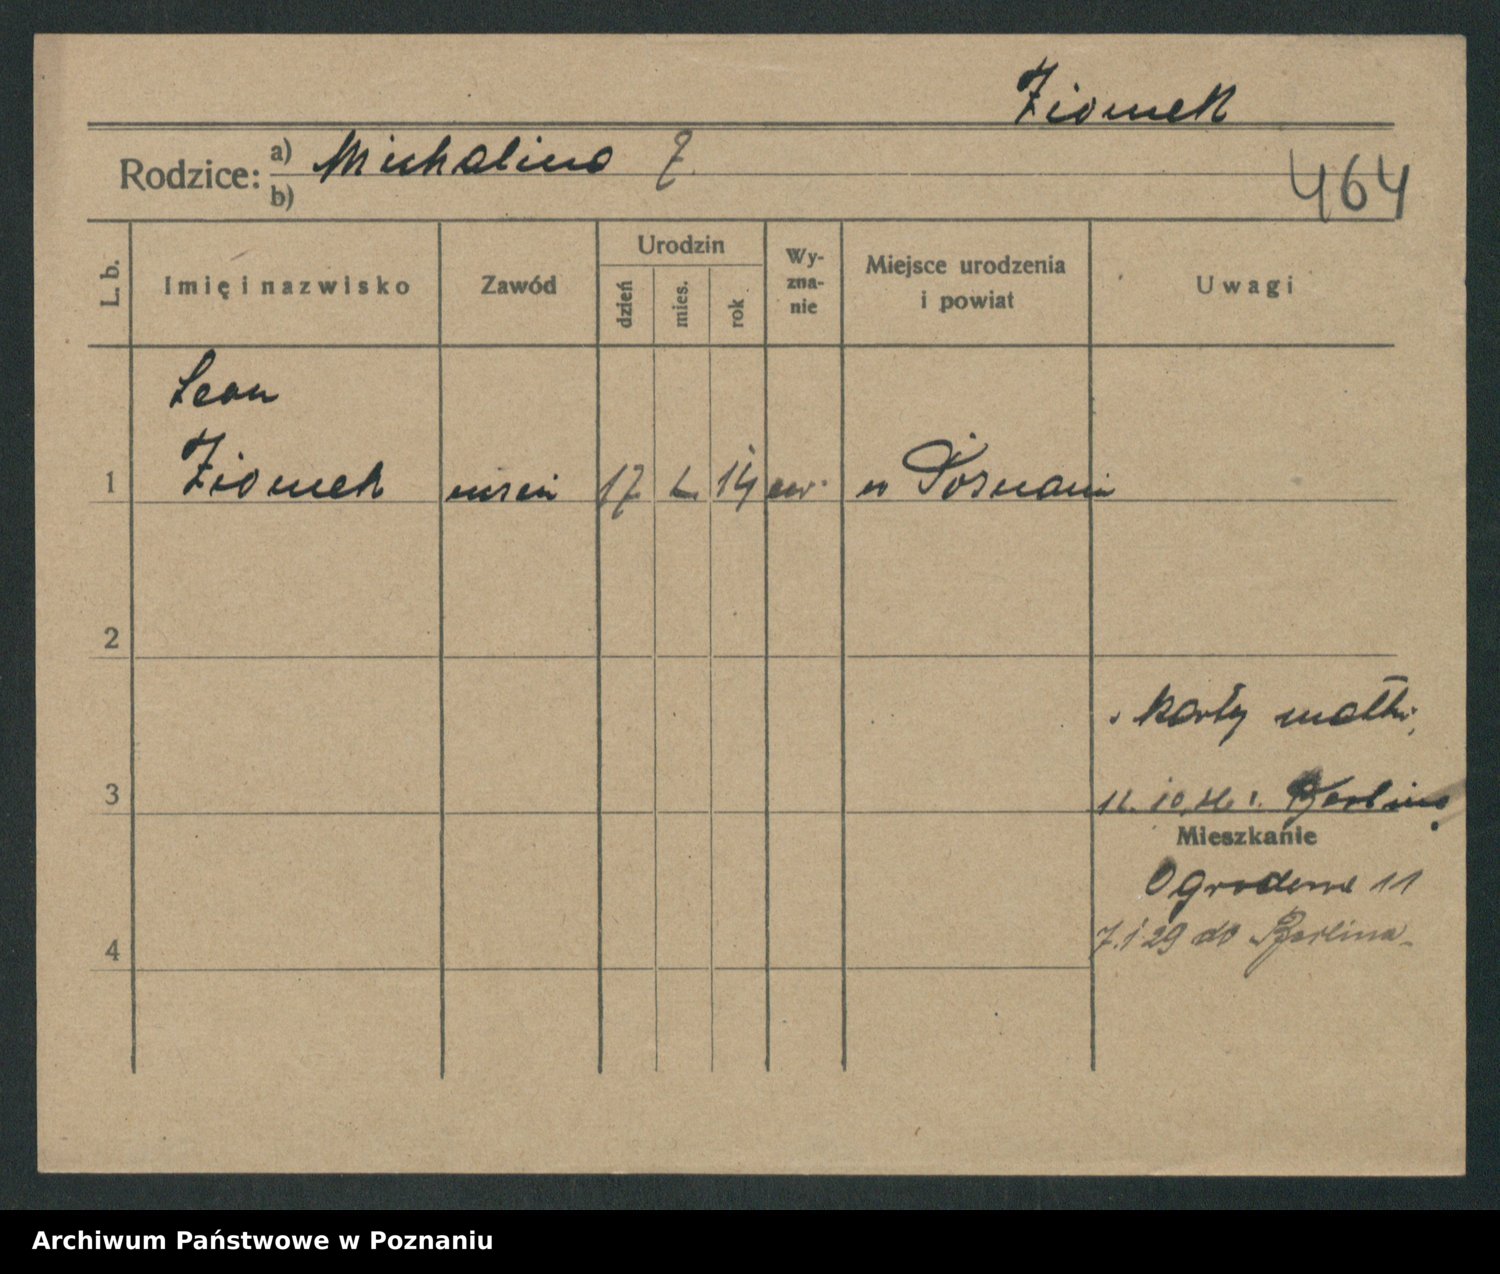 Ziomek
Rodzice: a) Michalina Z.
b)
464
L. b.
Imię i nazwisko
Zawód
Urodzin
dzień
mies.
rok
Wy-
zna-
nie
Miejsce urodzenia
i powiat
Uwagi
Leon
1 Ziomek uczeń 17 14 w Poznaniu
2
karty matki
3 10. Berlina
Mieszkanie
Ogrodowa 11
7.1.29 do Berlina
4
Archiwum Państwowe w Poznaniu